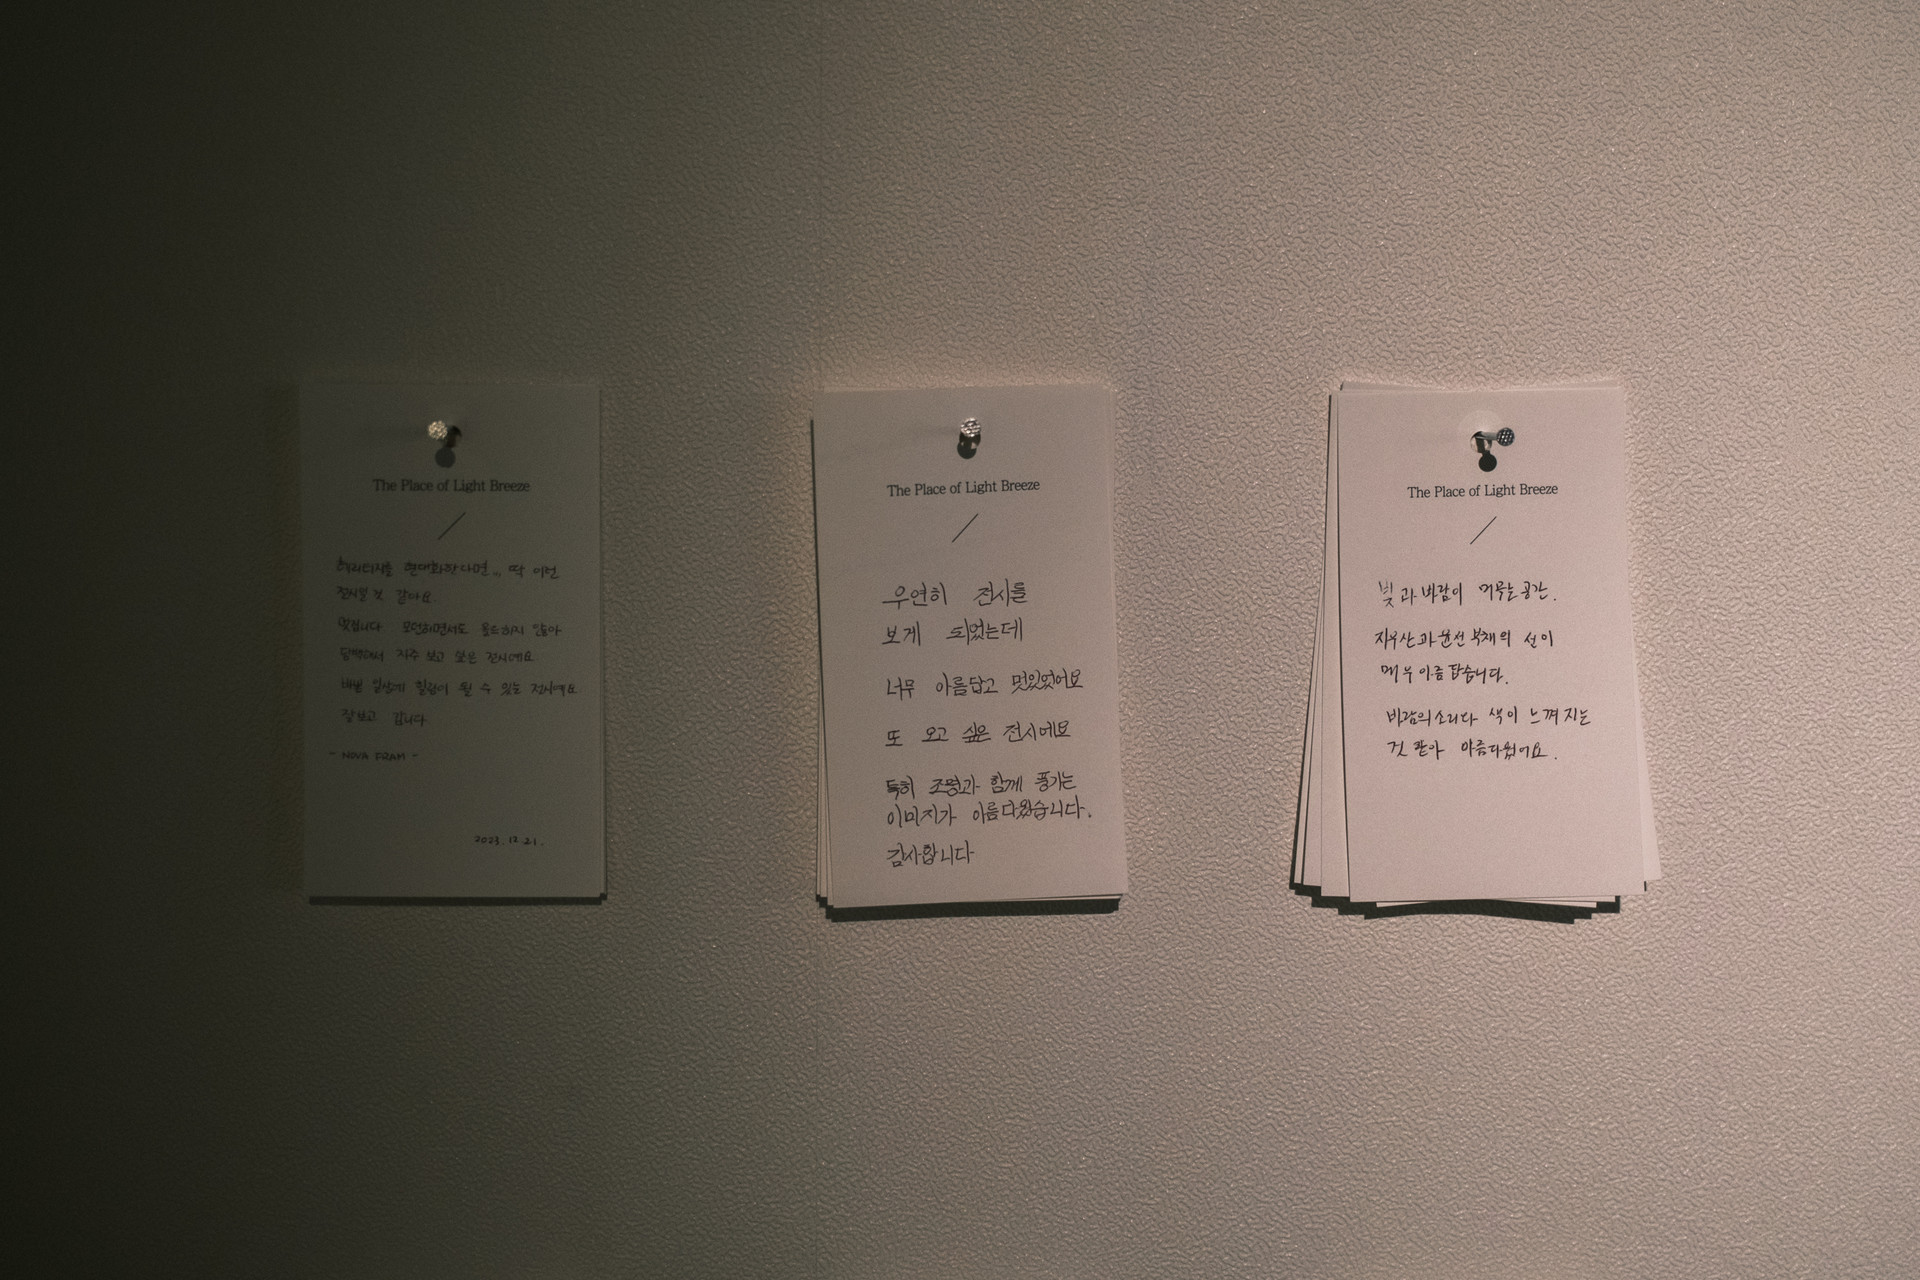 The Place of Light Breeze
헤리티지를 현대화한다면,,, 딱 이런
전시일 것 같아요.
멋집니다. 모던하면서도 하지 않아
담백해서 자주 보고 싶은 전시예요
매번 일상에 힐링이 될 수 있는 전시예요.
잘보고 갑니다
- NOVA FRAM -
2023. 12. 21.
The Place of Light Breeze
우연히 전시를
보게 되었는데
너무 아름답고 멋있었어요
또 오고 싶은 전시에요
특히 조명과 함께 풍기는
이미지가 아름다왔습니다.
감사합니다
The Place of Light Breeze
빛과 바람이 머무는 공간.
지우산과 윤선 부채의 선이
매우 아름답습니다.
바람의 소리다 색이 느껴지는
것 같아 아름다웠어요.